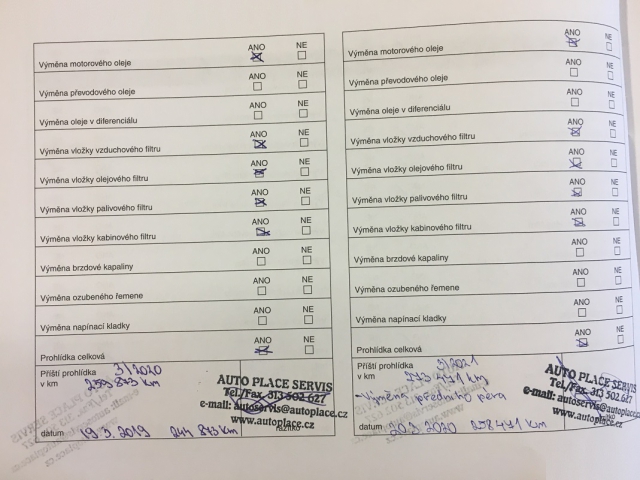 ANO NE
Výměna motorového oleje
ANO NE
Výměna převodového oleje
ANO NE
Výměna oleje v diferenciálu
ANO NE
Výměna vložky vzduchového filtru
ANO NE
Výměna vložky olejového filtru
ANO NE
Výměna vložky palivového filtru
ANO NE
Výměna vložky kabinového filtru
ANO NE
Výměna brzdové kapaliny
ANO NE
Výměna ozubeného řemene
ANO NE
Výměna napínací kladky
ANO NE
Prohlídka celková
Příští prohlídka 3/2020
v km 259 873 km
AUTO PLACE SERVIS
Tel./Fax. 313 502 627
e-mail: autoservis@autoplace.cz
www.autoplace.cz
datum 19.3. 2019 244 873 km
ANO NE
Výměna motorového oleje
ANO NE
Výměna převodového oleje
ANO NE
Výměna oleje v diferenciálu
ANO NE
Výměna vložky vzduchového filtru
ANO NE
Výměna vložky olejového filtru
ANO NE
Výměna vložky palivového filtru
ANO NE
Výměna vložky kabinového filtru
ANO NE
Výměna brzdové kapaliny
ANO NE
Výměna ozubeného řemene
ANO NE
Výměna napínací kladky
ANO NE
Prohlídka celková
Příští prohlídka 3/2021
v km 273 471 km
- Výměna předního péra
AUTO PLACE SERVIS
Tel./Fax. 313 502 627
e-mail: autoservis@autoplace.cz
www.autoplace.cz
datum 20.3. 2020 258 471 km